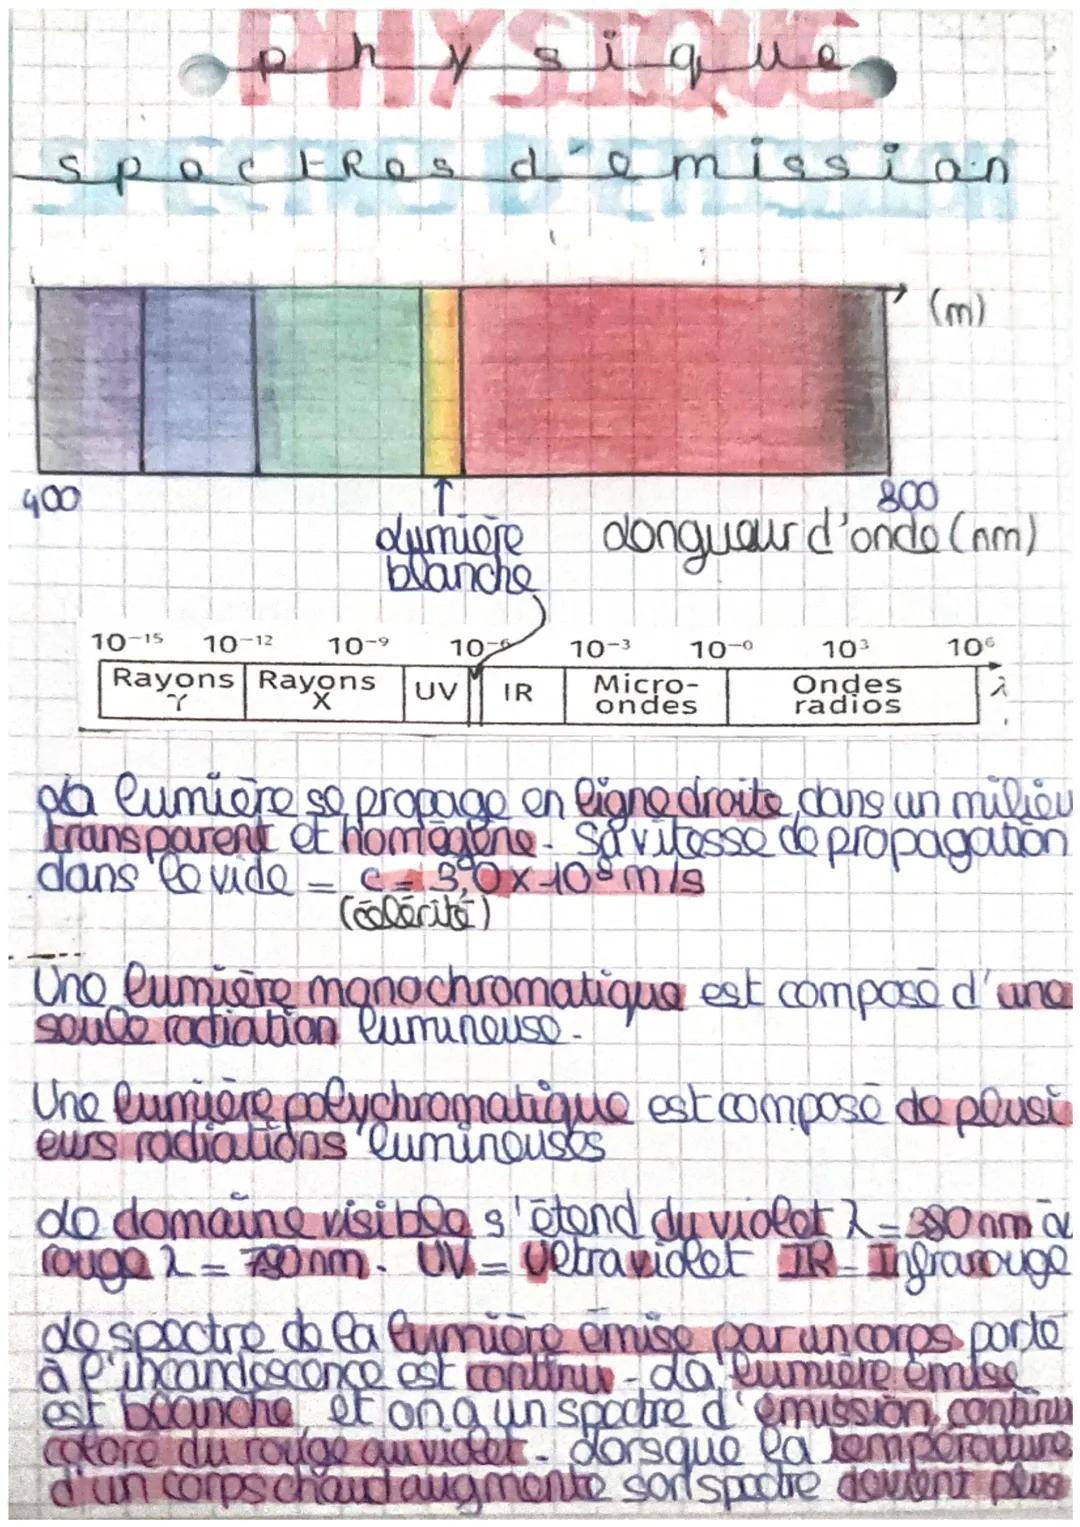 PHYSIQUE
physique
spectres d'émission
(m)
400
800
lumière
blanche
longueur d'onde (nm)
10⁻¹⁵ 10⁻¹² 10⁻⁹ 10⁻⁶ 10⁻³ 10⁻⁰ 10³ 10⁶
Rayons γ Rayons X UV IR Micro-ondes Ondes radios λ
La lumière se propage en ligne droite dans un milieu
transparent et homogène. Sa vitesse de propagation
dans le vide = c = 3,0 x 10⁸ m/s
(célérité)
Une lumière monochromatique est composé d'une
seule radiation lumineuse.
Une lumière polychromatique est composé de plusi
eurs radiations lumineuses
Le domaine visible s'étend du violet λ = 380 nm au
rouge λ = 780 nm. UV = Ultraviolet IR = Infrarouge
Le spectre de la lumière émise par un corps porté
à l'incandescence est continu. La lumière émise
est blanche et on a un spectre d'émission continu
coloré du rouge au violet. Lorsque la température
d'un corps chaud augmente son spectre devient plus